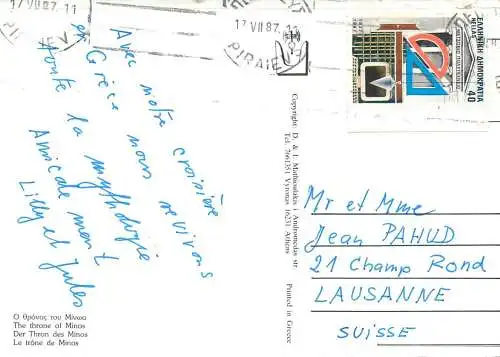 17 VII 87. 11
17 VII 87. 11
PIRAIEV
PIRAIEV
ΕΛΛΗΝΙΚΗ ΔΗΜΟΚΡΑΤΙΑ
HELLAS
40
Avec notre croisière
en Grèce nous revivons
toute la mythologie
Amicalement
Lilly et Jules
Ο θρόνος του Μίνωα
The throne of Minos
Der Thron des Minos
Le trône de Minos
Copyright D. & I. Mathioulakis 1 Andromedas str.
Tel. 7661351 Vyronas 16231 Athens
Printed in Greece
Mr et Mme
Jean PAHUD
21 Champ Rond
LAUSANNE
SUISSE